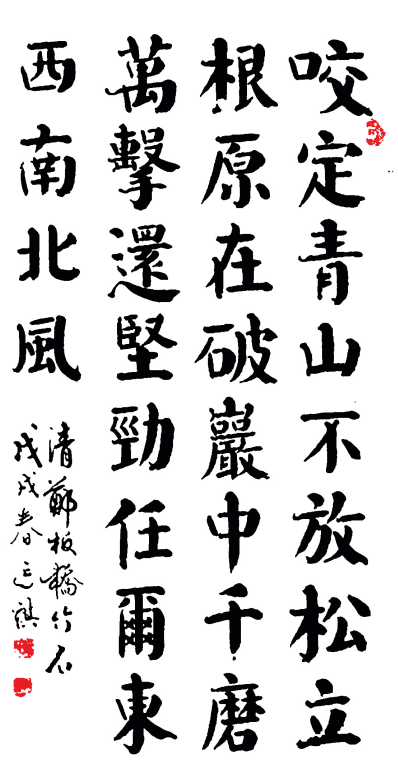 咬定青山不放松立
根原在破巖中千磨
萬擊還堅勁任爾東
西南北風
清鄭板橋竹石
戊戌春